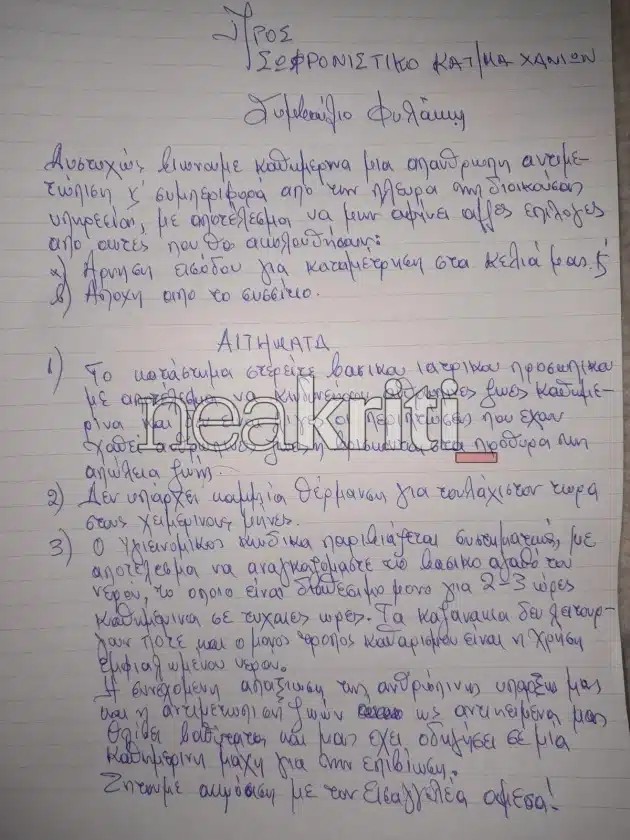 Προς
ΣΩΦΡΟΝΙΣΤΙΚΟ ΚΑΤ/ΜΑ ΧΑΝΙΩΝ
Συμβούλιο Φυλάκης
Δυστυχώς βιώνουμε καθημερινα μια απάνθρωπη αντιμε-
τώπιση κ' συμπεριφορα από την πλευρα της διοικούσας
υπηρεσίας, με αποτέλεσμα να μην αφήνει αλλες επιλογες
απο αυτες που θα ακολουθήσουν:
α) Αρνηση εισόδου για καταμέτρηση στα κελιά μας. ξ
β) Αποχη απο το συσσίτιο.
ΑΙΤΗΜΑΤΑ
1) Το κατάστημα στερείτε βασικου ιατρικου προσωπικου
με αποτέλεσμα να κινδυνεύουν ζωες καθημε-
ρινα και οι περιπτωσεις που εχουν
χαθει στα πρόθυρα της
απώλεια ζωής.
2) Δεν υπάρχει καμμία θέρμανση για τουλάχιστον τωρα
στους χειμερινους μηνες.
3) Ο Υγιεινομικος κωδικα παραβιάζεται συστηματικως, με
αποτέλεσμα να αναγκαζομαστε το βασικο αγαθο του
νερου, το οποιο είναι διαθεσιμο μονο για 2-3 ώρες
καθημερινα σε τυχαιες ωρες. Τα καζανακια δεν λειτουρ-
γουν ποτε και ο μονος τροπος καθαρισμου ειναι η χρηση
εμφιαλωμενου νερου.
Η συνεχομενη απαξίωση της ανθρώπινης υπαρξη μας
και η αντιμετωπιση ζωών ως αντικειμενα μας
θλιβει βαθύτατα και μας εχει οδηγήσει σε μια
καθημερινη μαχη για την επιβίωση.
Ζητουμε ακρόαση με τον Εισαγγελέα αμεσα!
neakriti